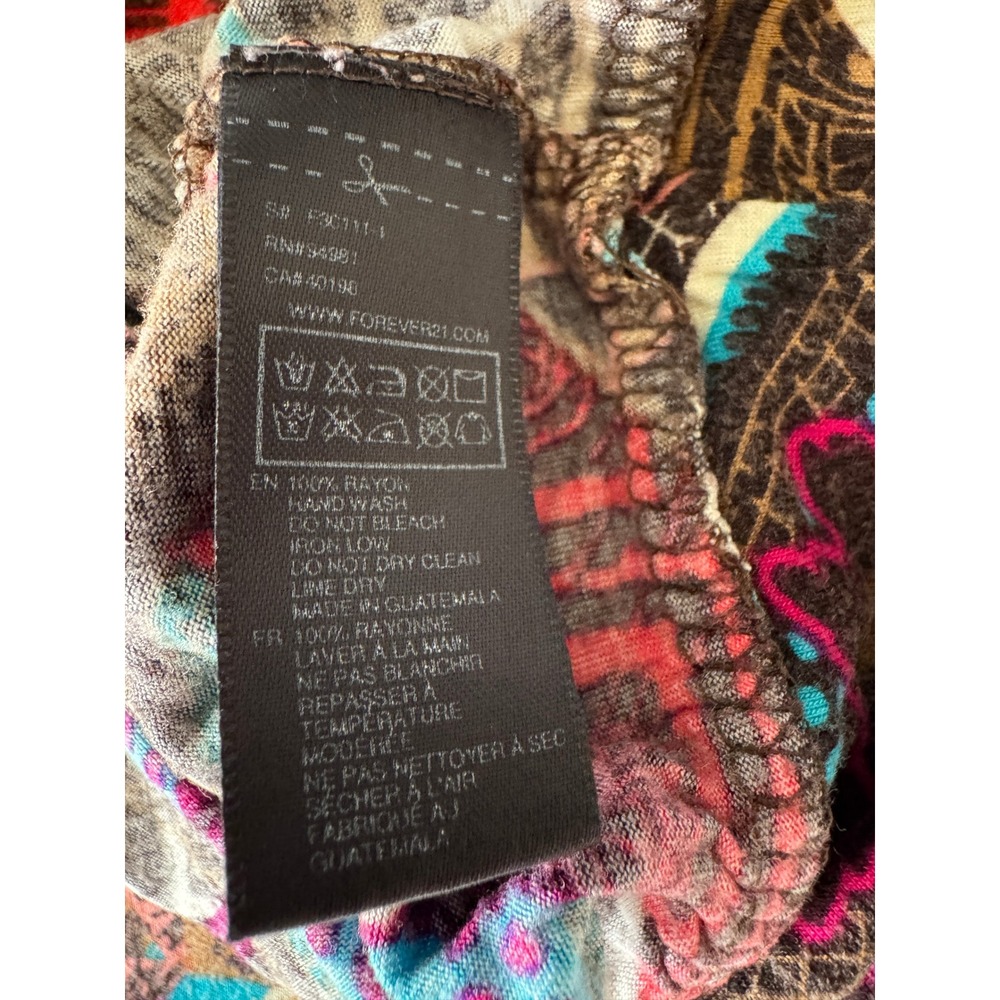 S# F3C111-1
RN#94981
CA#40198
WWW.FOREVER21.COM
EN 100% RAYON
HAND WASH
DO NOT BLEACH
IRON LOW
DO NOT DRY CLEAN
LINE DRY
MADE IN GUATEMALA
FR 100% RAYONNE
LAVER A LA MAIN
NE PAS BLANCHIR
REPASSER À
TEMPÉRATURE
MODÉRÉE
NE PAS NETTOYER À SEC
SÉCHER À L'AIR
FABRIQUÉ AJ
GUATEMALA